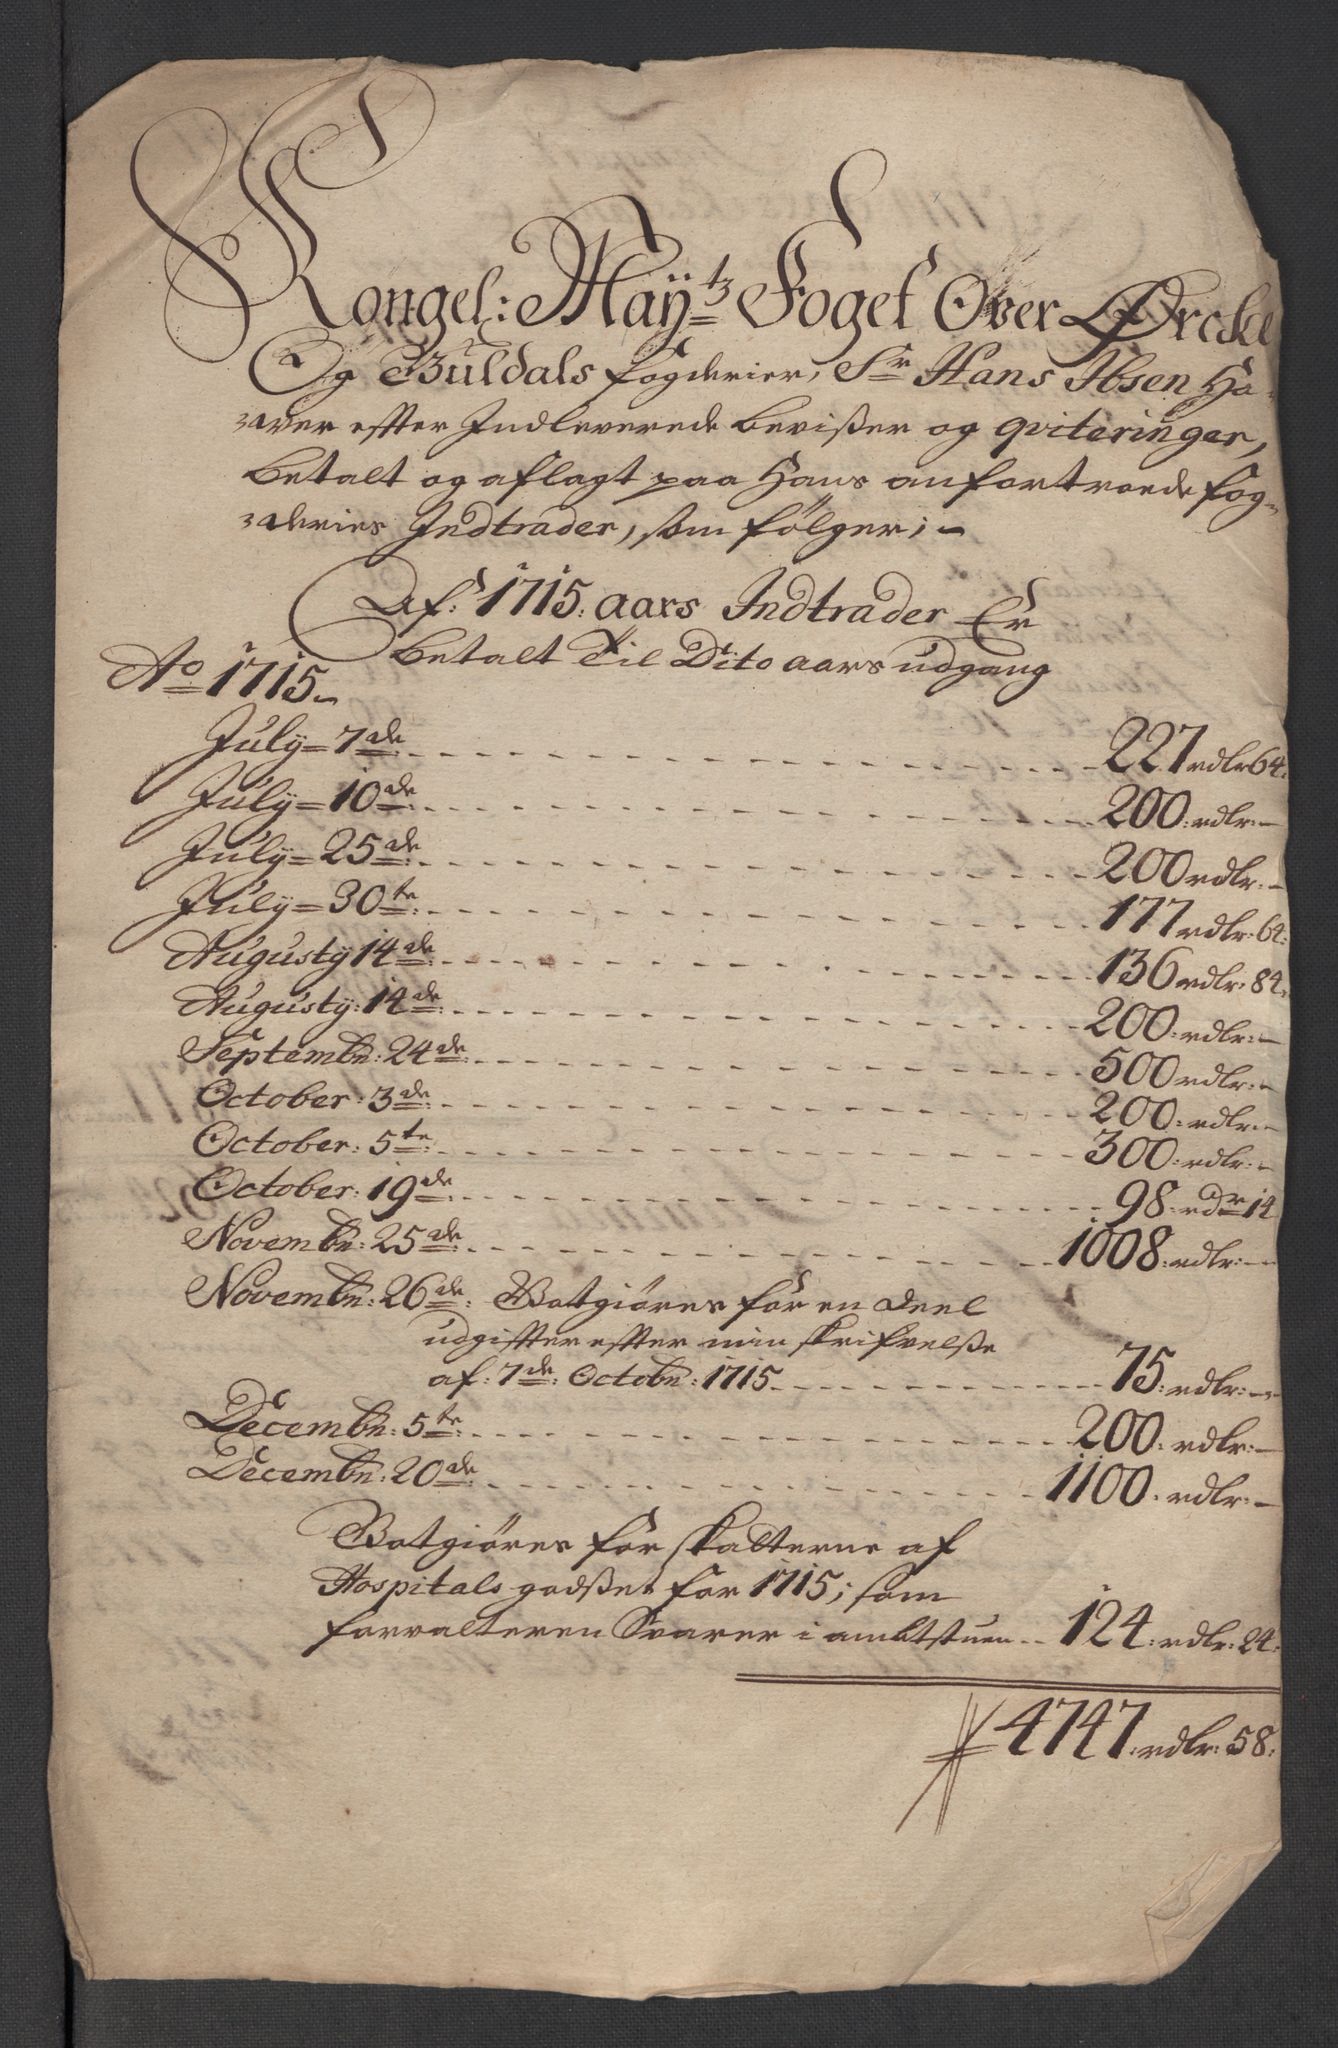 Kongel: Maÿtz Foget Over Ørckel
Og Guldals fogderier, Sr Hans Ibsen Ha-
aver effter Indleverede bevißer og qviteringer,
betalt og aflagt paa Hans anfortroede fog-
deries Indtrader, som følger; -
Af: 1715. aars Indtrader Er
betalt Til Dito aars udgang
Ao 1715.
July 7de 227 rdlr 64:
July 10de 200: rdlr: -
July 25de 200 rdlr: -
July 30te 177 rdlr: 64:
Augusty 14de 136 rdlr: 84:
Augusty: 14de 200: rdlr: -
Septembr: 24de 500 rdlr: -
October: 3de 200: rdlr: -
October: 5te 300: rdlr: -
October: 19de 98: rdr 14
Novembr: 25de 1008: rdlr: -
Novembr: 26de: Gotgiøres for en deel
udgiffter effter min skrifvelße
af: 7de: Octobr: 1715 75: rdlr: -
Decembr: 5te 200: rdlr: -
Decembr: 20de 1100: rdlr: -
Gotgiøres for skatterne af
Hospitals godßet for 1715; som
forvalteren Svarer i ambtstuen 124: rdlr: 24:
4747: rdlr: 58: